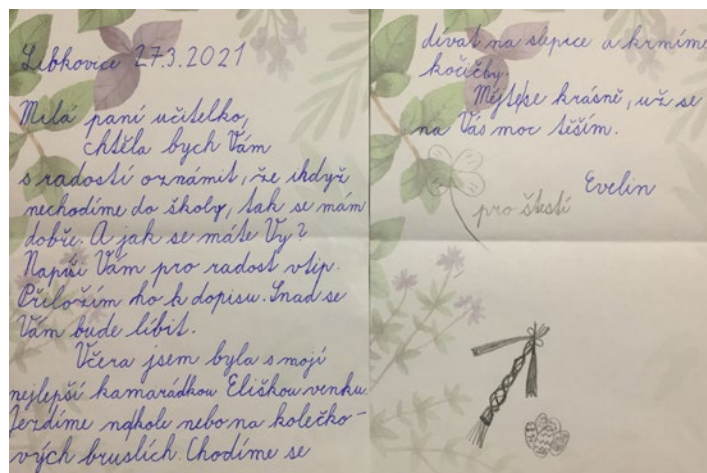 Libkovice 27.3.2021
Milá paní učitelko,
chtěla bych Vám
s radostí oznámit, že ikdyž
nechodíme do školy, tak se mám
dobře. A jak se máte Vy?
Napíši Vám pro radost vtip.
Přiložím ho k dopisu. Snad se
Vám bude líbit.
Včera jsem byla s mojí
nejlepší kamarádkou Eliškou venku.
Jezdíme na kole nebo na kolečko-
vých bruslích. Chodíme se
dívat na slepice a krmíme
kočičby.
Mějte se krásně, už se
na Vás moc těším.
Evelin
pro štestí